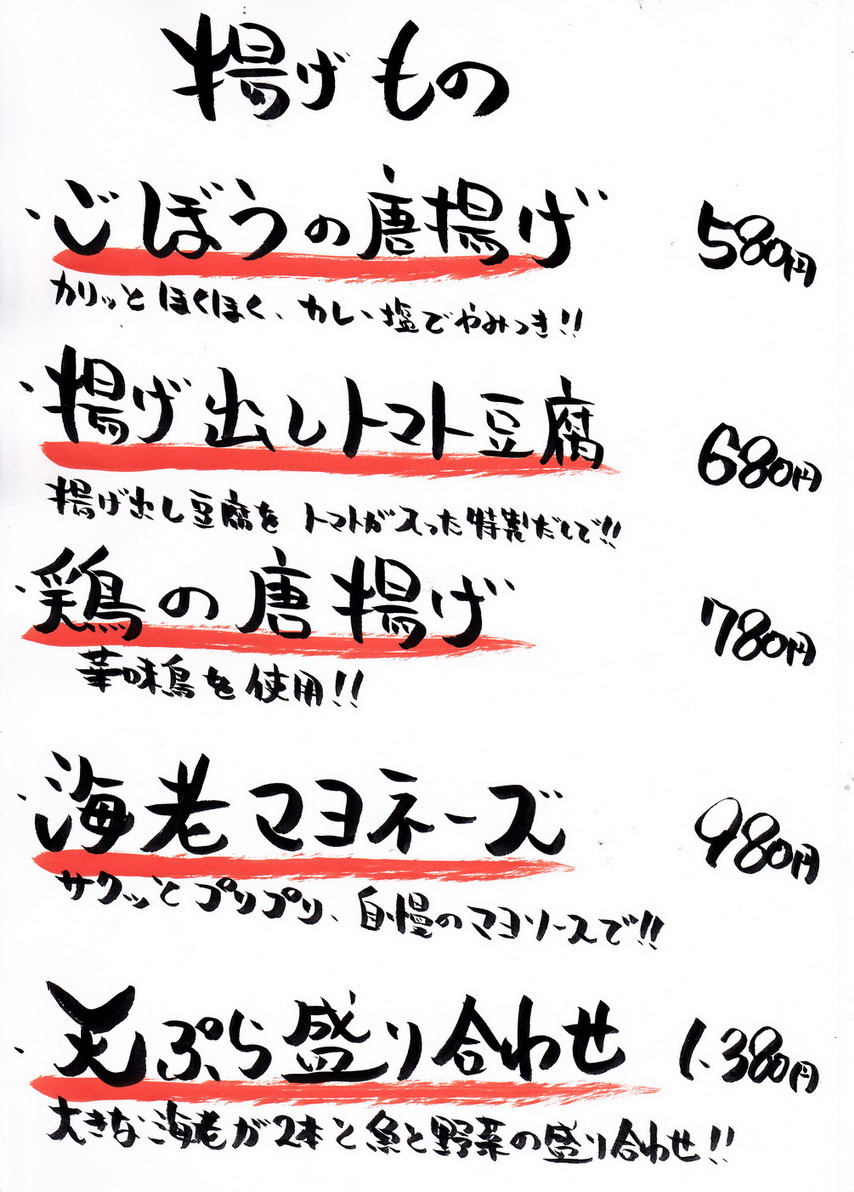 揚げもの
・ごぼうの唐揚げ 580円
カリッとほくほく、カレー塩でやみつき!!
・揚げ出しトマト豆腐 680円
揚げ出し豆腐をトマトが入った特製だしで!!
・鶏の唐揚げ 780円
華味鳥を使用!!
・海老マヨネーズ 980円
サクッとプリプリ、自慢のマヨソースで!!
・天ぷら盛り合わせ 1.380円
大きな海老が2本と魚と野菜の盛り合わせ!!